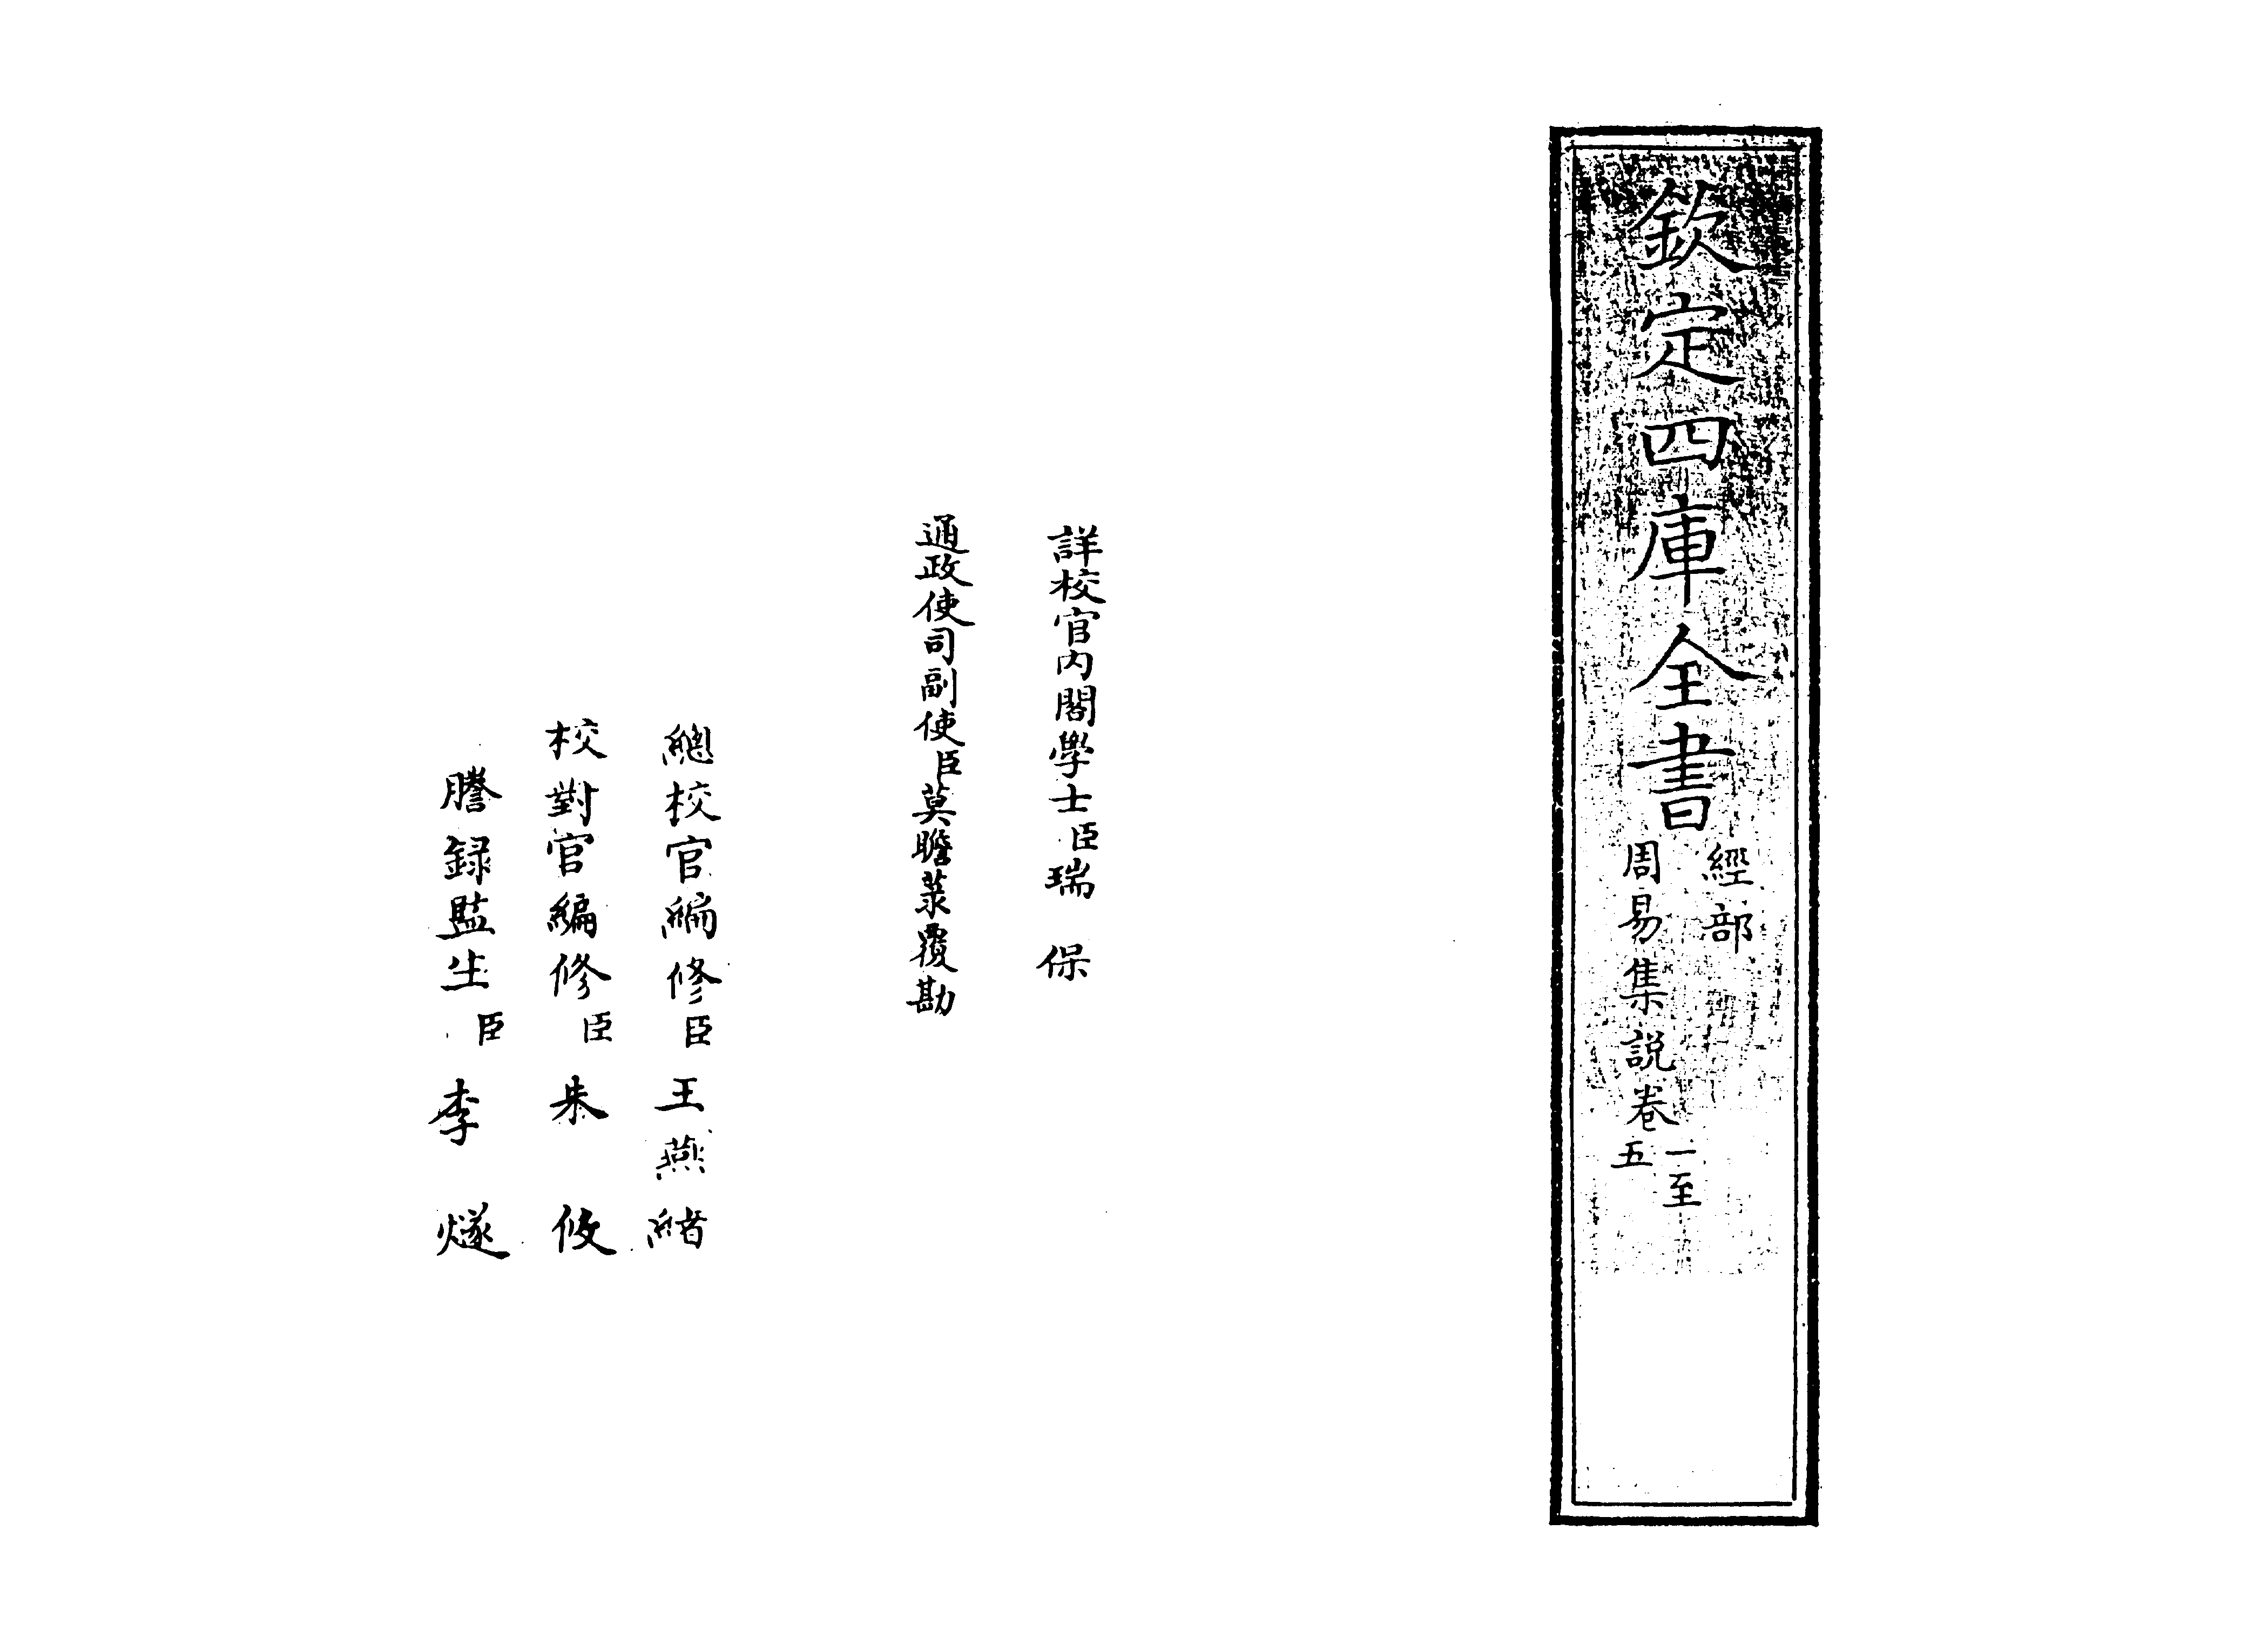 欽定四庫全書
經部
周易集説卷一至五
詳校官内閣學士臣瑞保
通政使司副使臣莫瞻菉覆勘
總校官編修臣王燕緒
校對官編修臣朱攸
謄録監生臣李燧